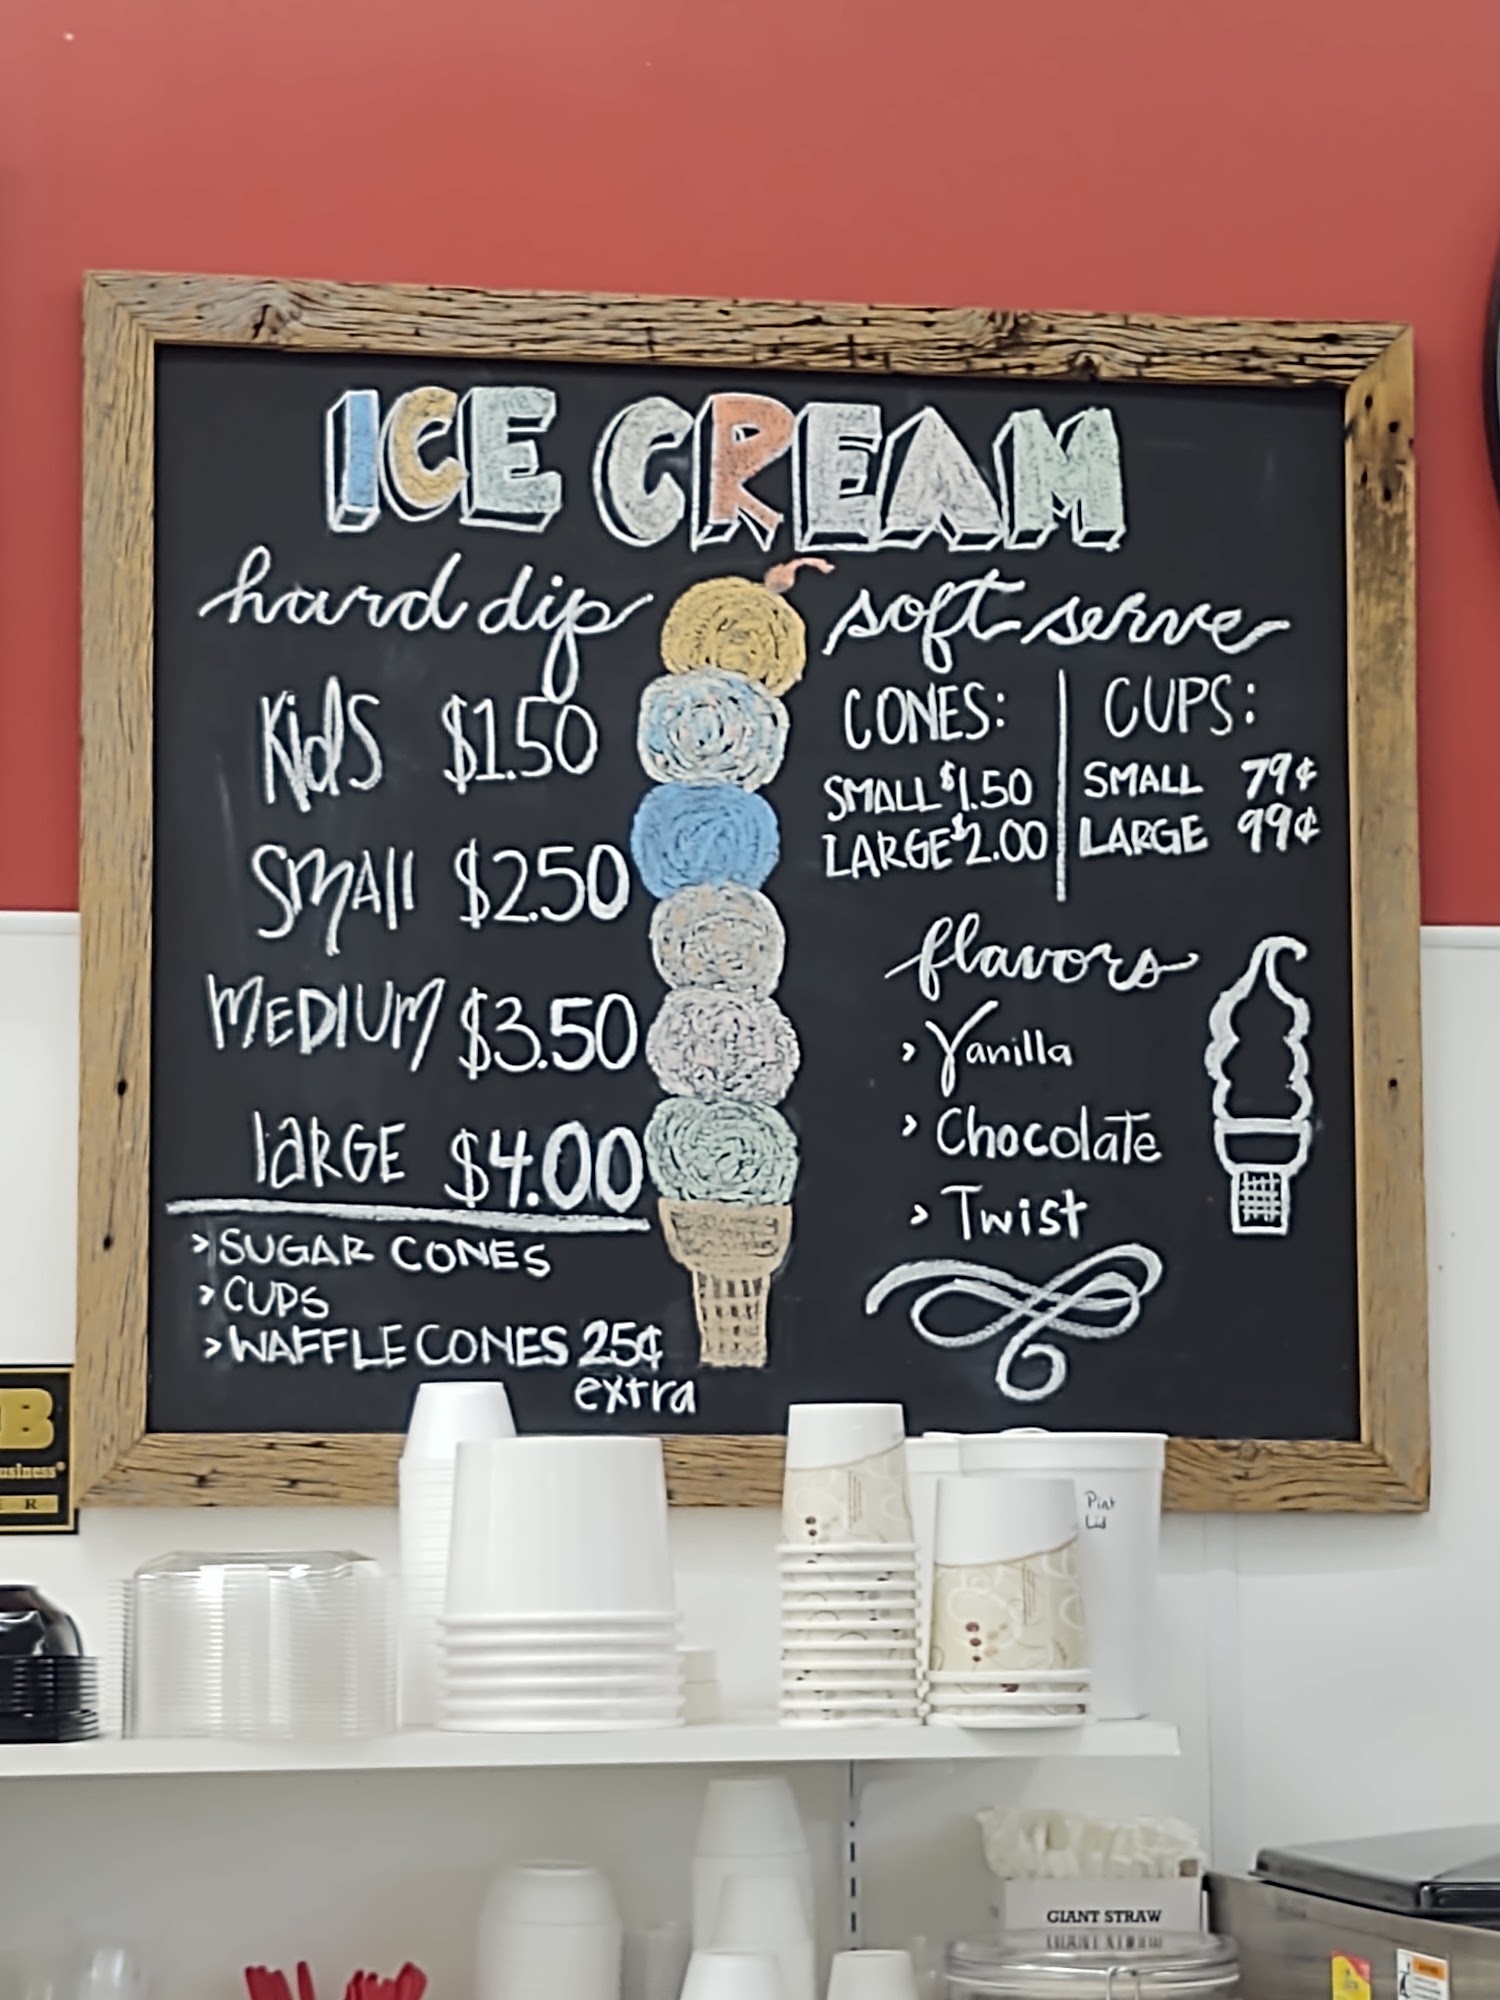 ICE CREAM
hard dip
Kids $1.50
Small $2.50
MEDIUM $3.50
laRGE $4.00
> SUGAR CONES
> CUPS
> WAFFLE CONES 25¢
extra
soft serve
CONES:
SMALL $1.50
LARGE $2.00
CUPS:
SMALL 79¢
LARGE 99¢
flavors
> Vanilla
> Chocolate
> Twist
B
usiness®
E R
Pint
Lid
GIANT STRAW